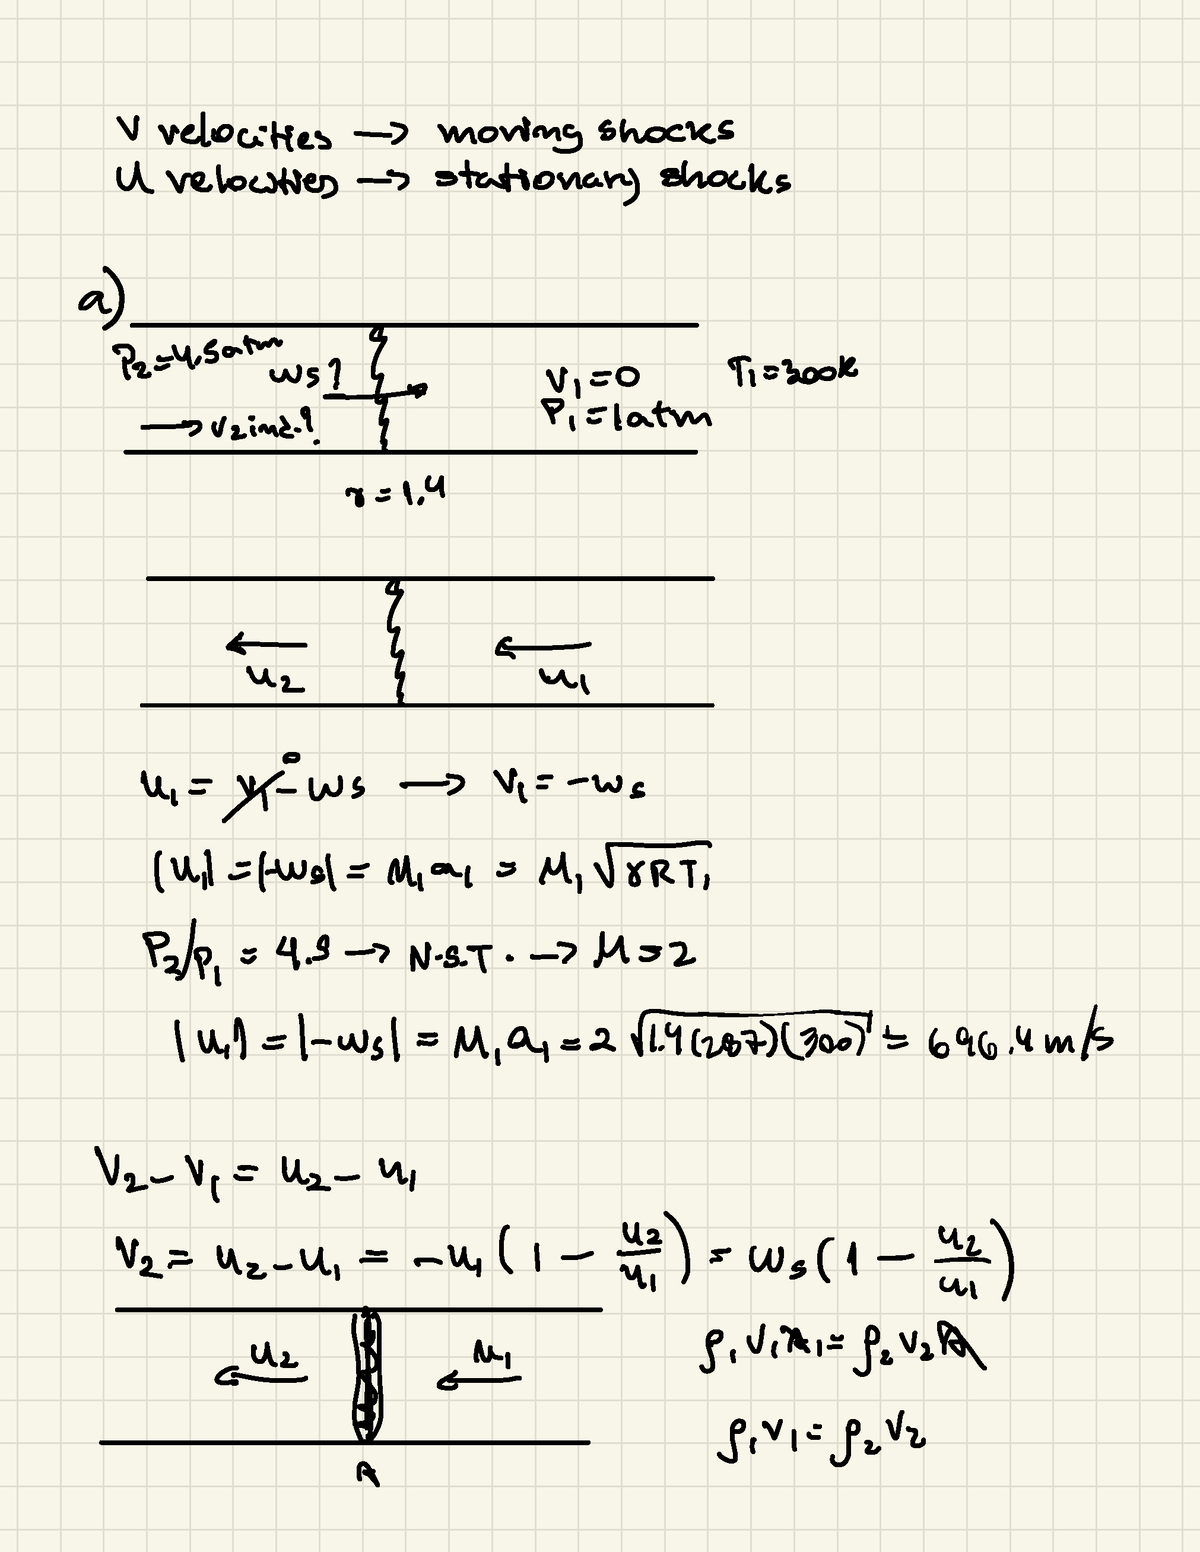 V velocities → moving shocks
U velocities → stationary shocks
a)
P₂=4.5atm
ws?
→ V₂ind.?
V₁=0
P₁=1atm
T₁=300K
γ=1.4
u₂
u₁
u₁ = V₁⁰ - ws → V₁ = -ws
|u₁| = |-ws| = M₁a₁ = M₁ √γRT₁
P₂/P₁ = 4.5 → N.S.T. → M=2
|u₁| = |-ws| = M₁a₁ = 2 √1.4(287)(300) = 696.4 m/s
V₂ - V₁ = u₂ - u₁
V₂ = u₂ - u₁ = -u₁(1 - u₂/u₁) = ws(1 - u₂/u₁)
u₂
u₁
A
ρ₁V₁A₁ = ρ₂V₂A
ρ₁V₁ = ρ₂V₂